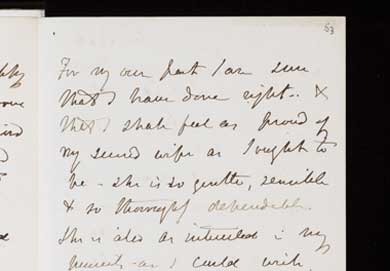 63
For my own part I am sure
that I have done right.. &
that I shall feel as proud of
my second wife as I ought to
be - she is so gentle, sensible
& so thoroughly dependable.
She is also as interested in my
pursuits as I could wish